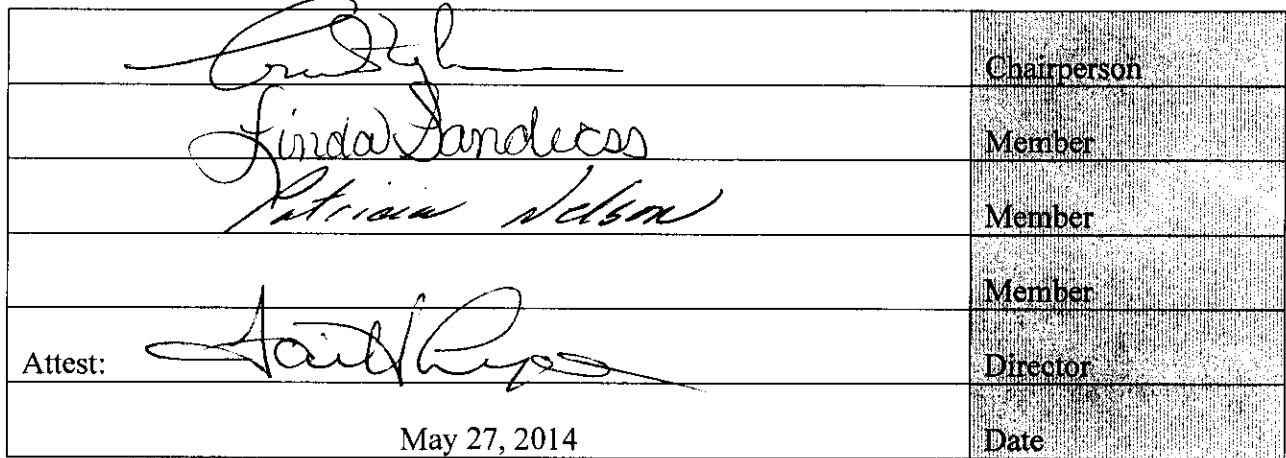 Chairperson
Linda Member
Patricia Nelson Member
Member
Attest: Director
May 27, 2014 Date